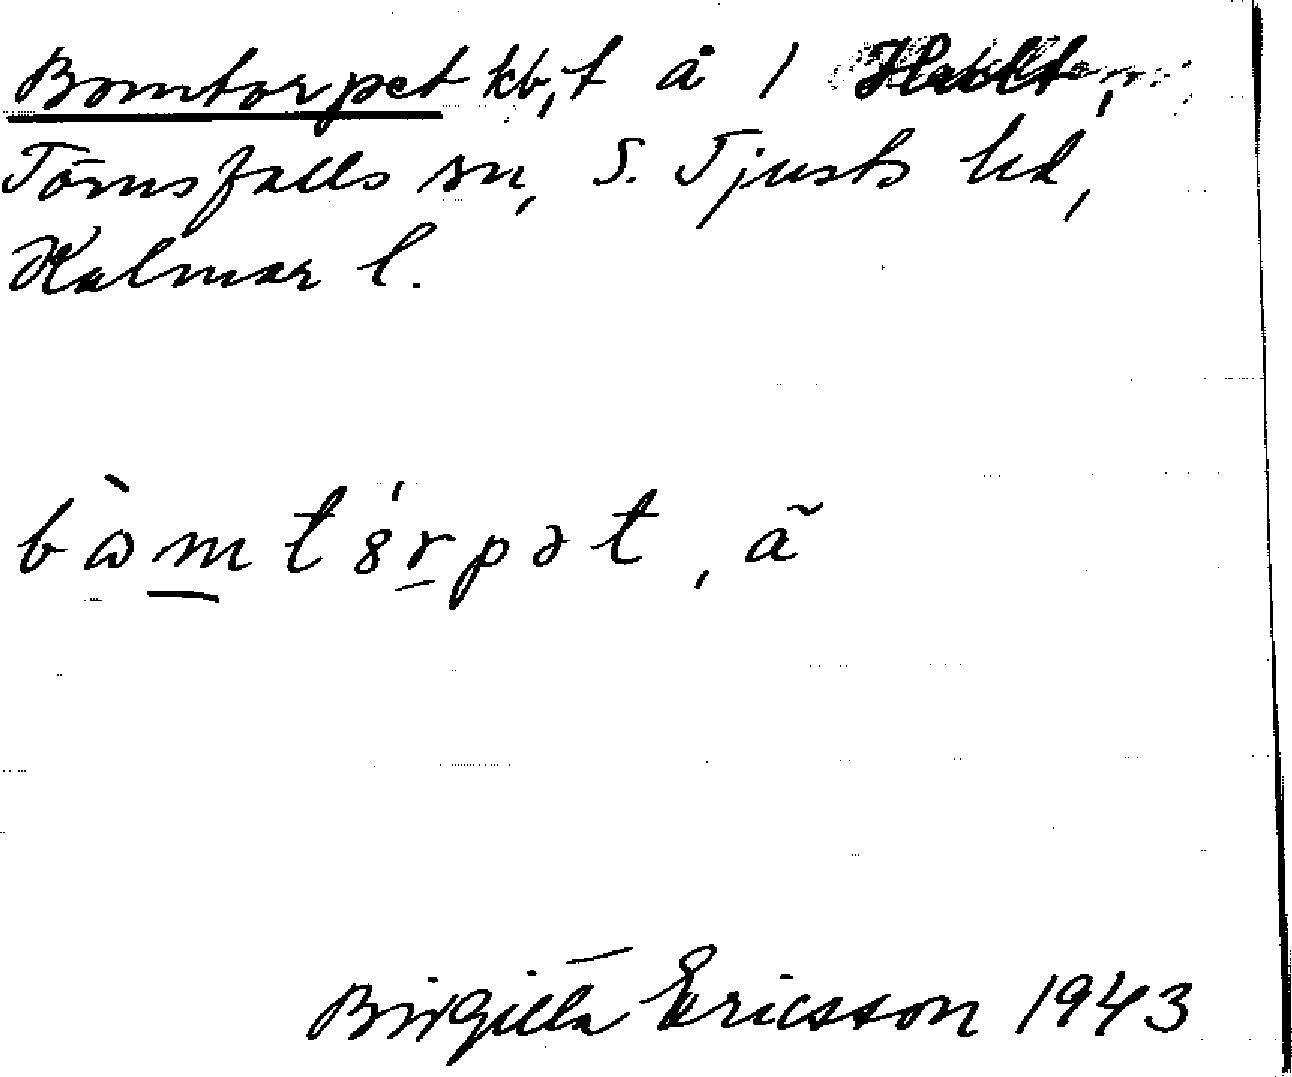 Bomtorpet kb, t å 1
Törnsfalls sn, S. Tjusts hd,
Kalmar l.
bɷ̀mt8́rpət, ã
Birgitta Ericsson 1943